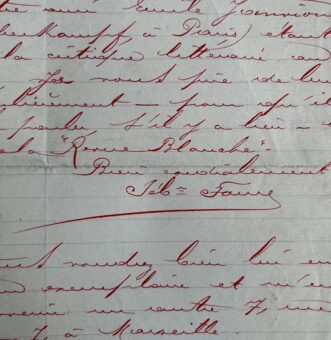 tre ami Emile Janvion
berkampf, à Paris) étant
la critique littéraire au
Je vous prie de lu
lièrement — pour qu'i
parler, s'il y a lieu —
de la "Revue Blanche"
Bien cordialement
Seb = Faure
voudrez bien lui en
exemplaire et m'en
un autre 7, rue
7, à Marseille.